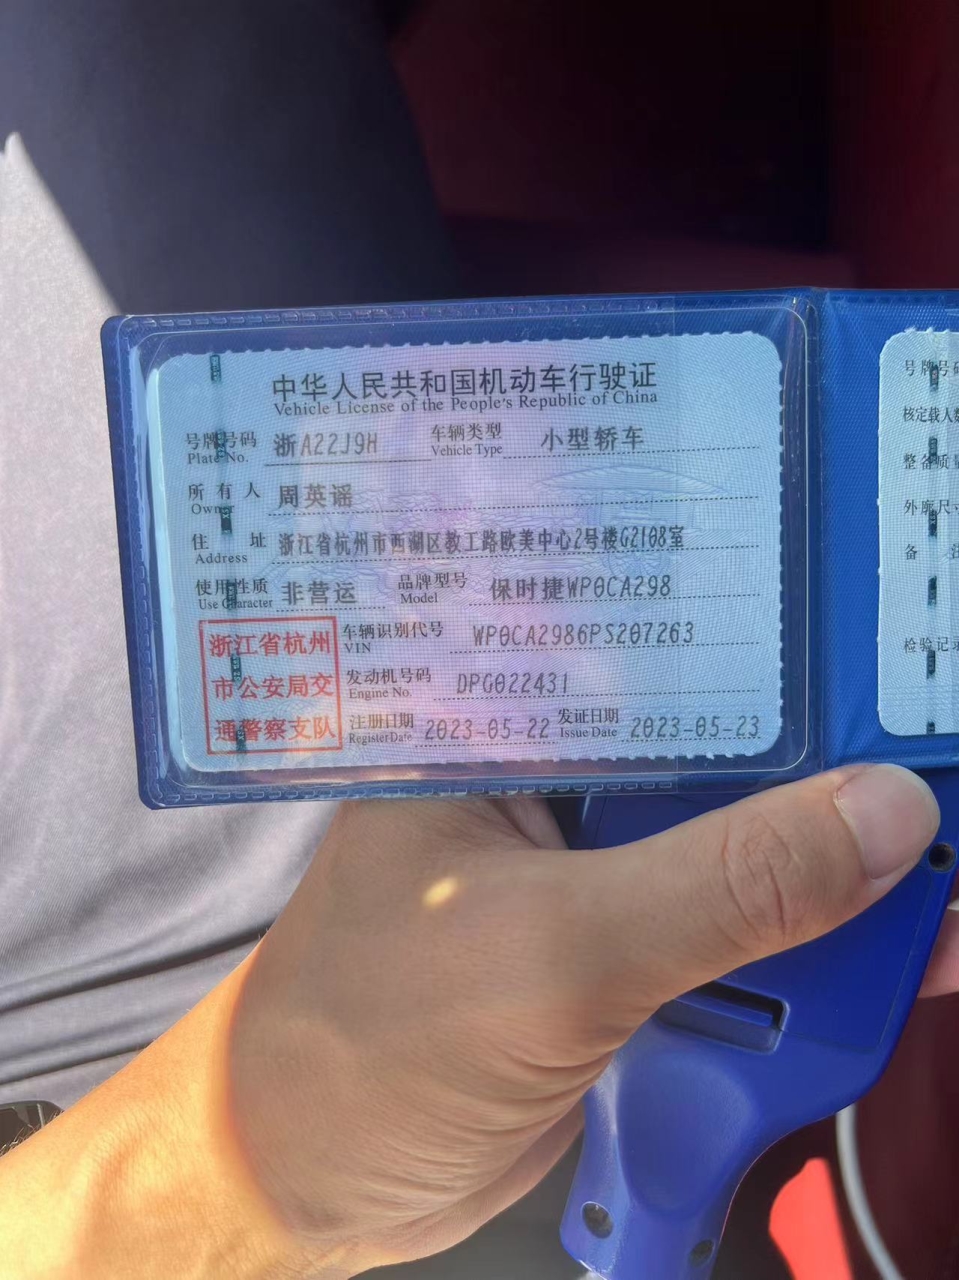 中华人民共和国机动车行驶证
Vehicle License of the People's Republic of China
号牌号码 浙A22J9H 车辆类型 小型轿车
Plate No. Vehicle Type
所有人 周英谣
Owner
住址 浙江省杭州市西湖区教工路欧美中心2号楼G2108室
Address
使用性质 非营运 品牌型号 保时捷WP0CA298
Use Character Model
浙江省杭州
市公安局交
通警察支队
车辆识别代号 WP0CA2986PS207263
VIN
发动机号码 DPG022431
Engine No.
注册日期 2023-05-22 发证日期 2023-05-23
Register Date Issue Date
号牌号码
核定载人数
整备质量
外廓尺寸
备 注
检验记录